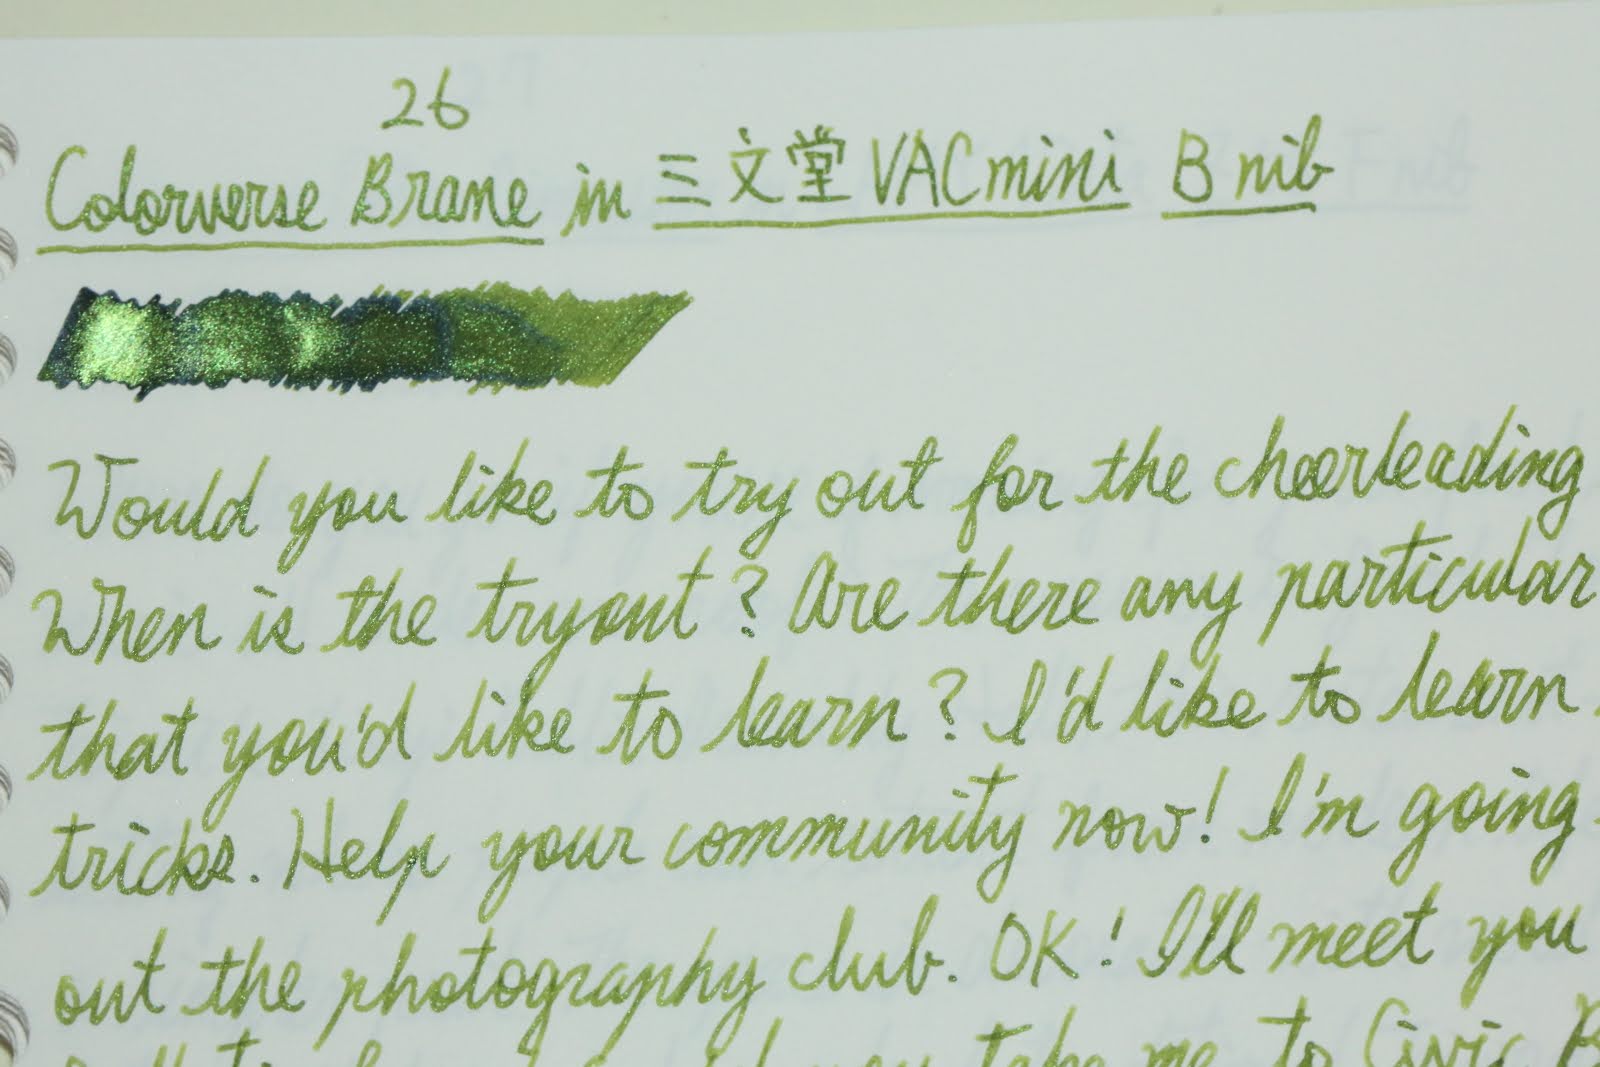 26
Colorverse Brane in 三文堂 VACmini B nib
Would you like to try out for the cheerleading
When is the tryout? Are there any particular
that you'd like to learn? I'd like to learn
tricks. Help your community now! I'm going
out the photography club. OK! I'll meet you
take me to Civic